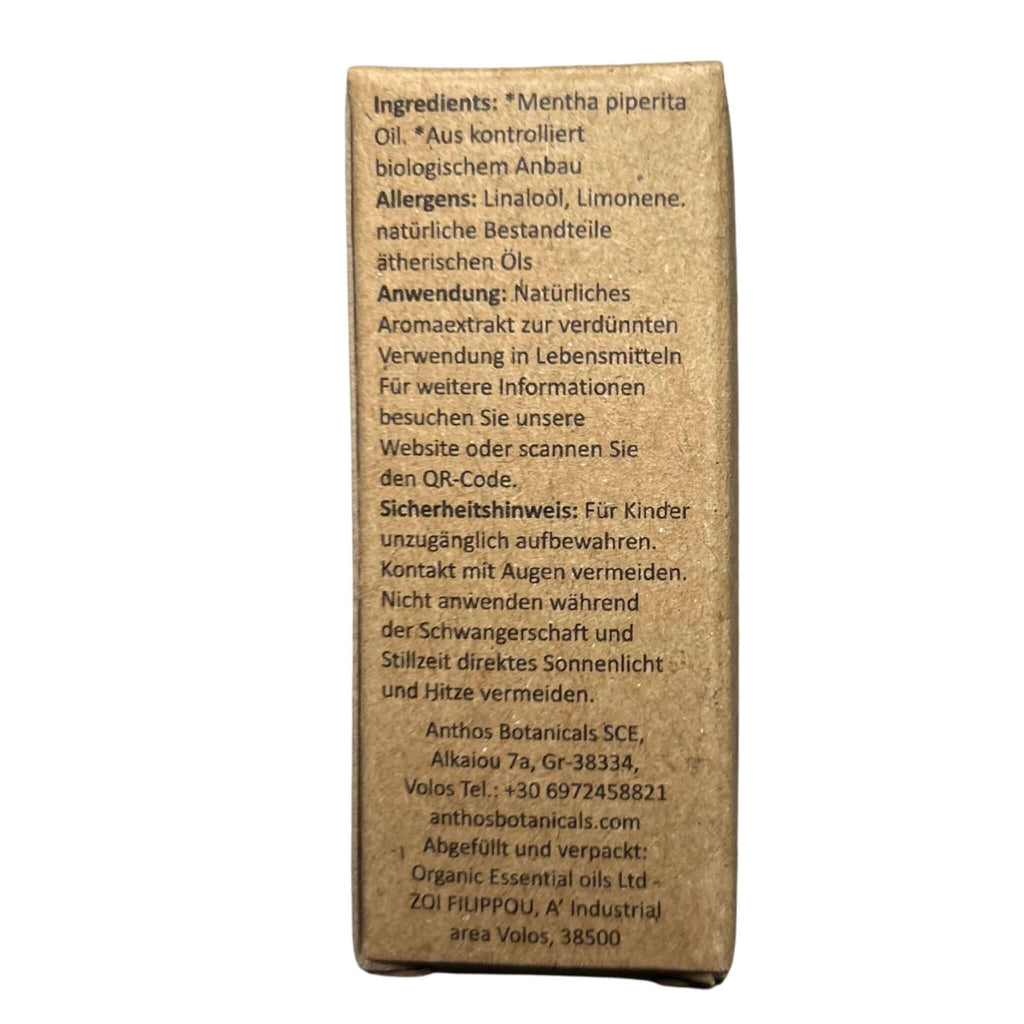 Ingredients: *Mentha piperita
Oil. *Aus kontrolliert
biologischem Anbau
Allergens: Linaloöl, Limonene.
natürliche Bestandteile
ätherischen Öls
Anwendung: Natürliches
Aromaextrakt zur verdünnten
Verwendung in Lebensmitteln
Für weitere Informationen
besuchen Sie unsere
Website oder scannen Sie
den QR-Code.
Sicherheitshinweis: Für Kinder
unzugänglich aufbewahren.
Kontakt mit Augen vermeiden.
Nicht anwenden während
der Schwangerschaft und
Stillzeit direktes Sonnenlicht
und Hitze vermeiden.
Anthos Botanicals SCE,
Alkaiou 7a, Gr-38334,
Volos Tel.: +30 6972458821
anthosbotanicals.com
Abgefüllt und verpackt:
Organic Essential oils Ltd -
ZOI FILIPPOU, A' Industrial
area Volos, 38500